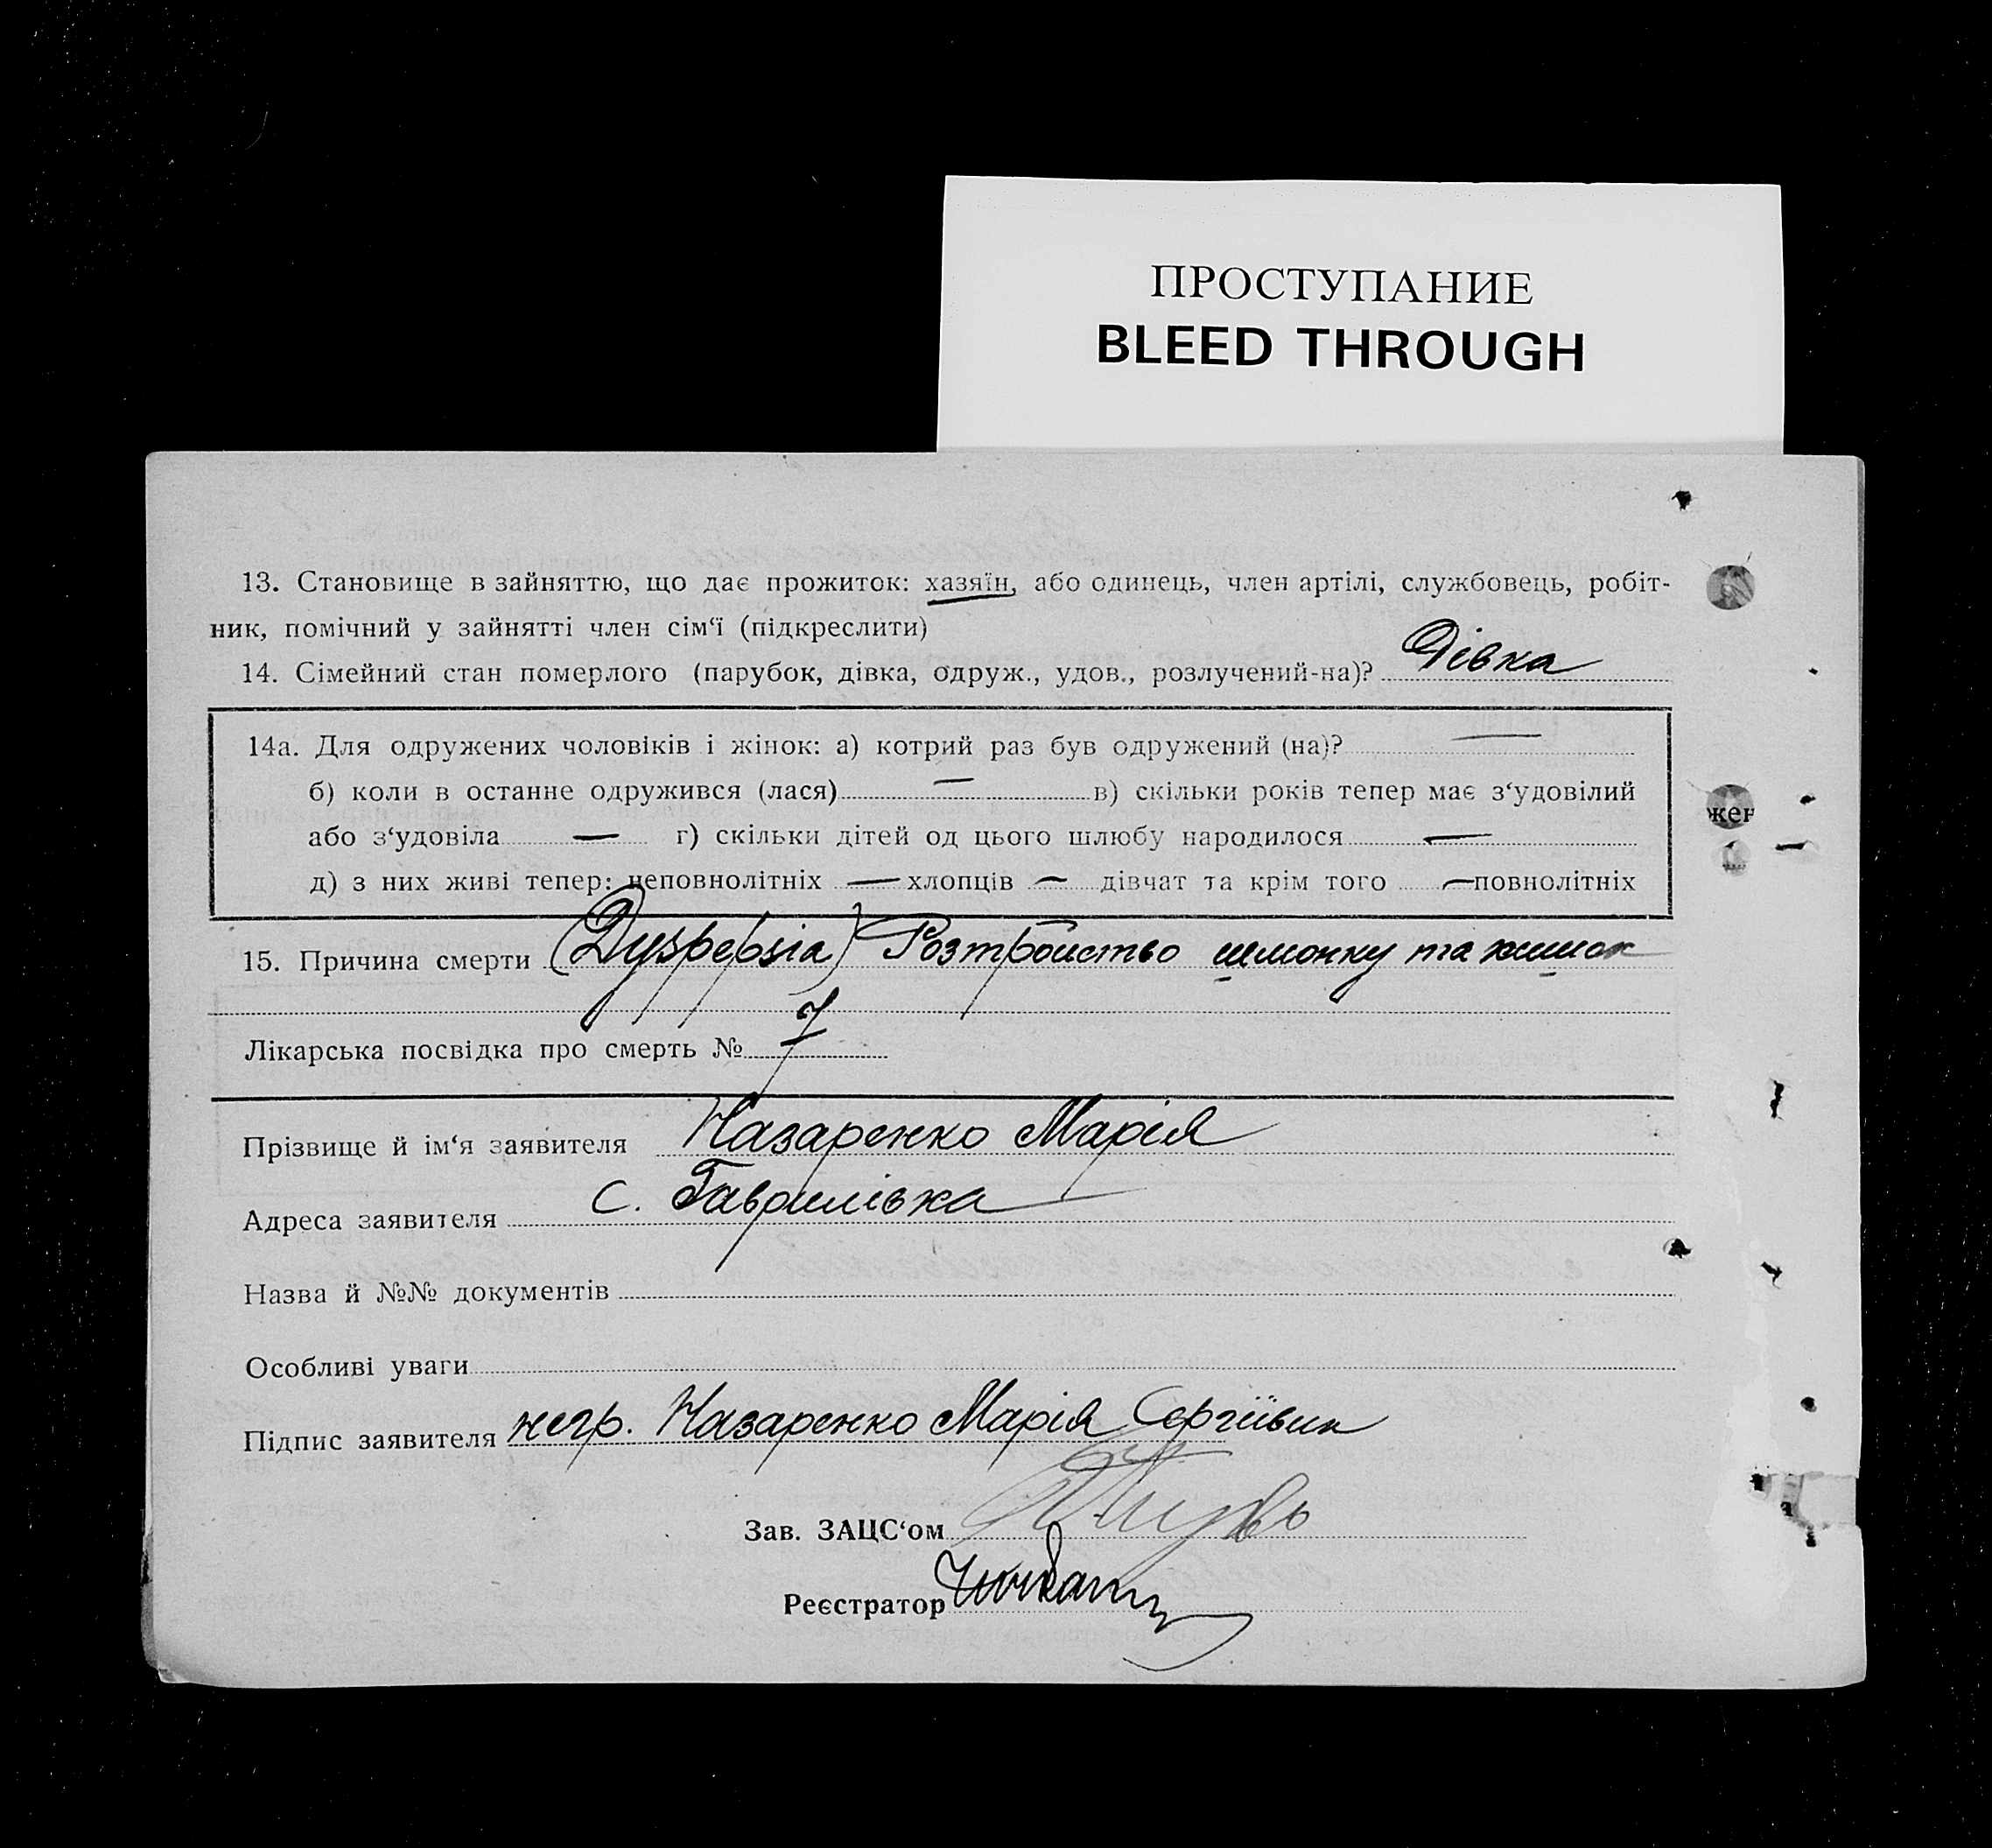 ПРОСТУПАНИЕ
BLEED THROUGH
13. Становище в зайняттю, що дає прожиток: хазяїн, або одинець, член артілі, службовець, робіт-
ник, помічний у зайнятті член сім‘ї (підкреслити)
14. Сімейний стан померлого (парубок, дівка, одруж., удов., розлучений-на)? Дівка
14а. Для одружених чоловіків і жінок: а) котрий раз був одружений (на)? —
б) коли в останне одружився (лася) — в) скільки років тепер має з‘удовілий
або з‘удовіла — г) скільки дітей од цього шлюбу народилося —
д) з них живі тепер: неповнолітніх — хлопців — дівчат та крім того — повнолітніх
жен
15. Причина смерти (Dyspepsia) Розтройство шлонку та кишок
Лікарська посвідка про смерть № 7
Прізвище й ім‘я заявителя Назаренко Марія
Адреса заявителя с. Гаврилівка
Назва й №№ документів
Особливі уваги
Підпис заявителя негр. Назаренко Марія Сергіївна
Зав. ЗАЦС‘ом
Реєстратор